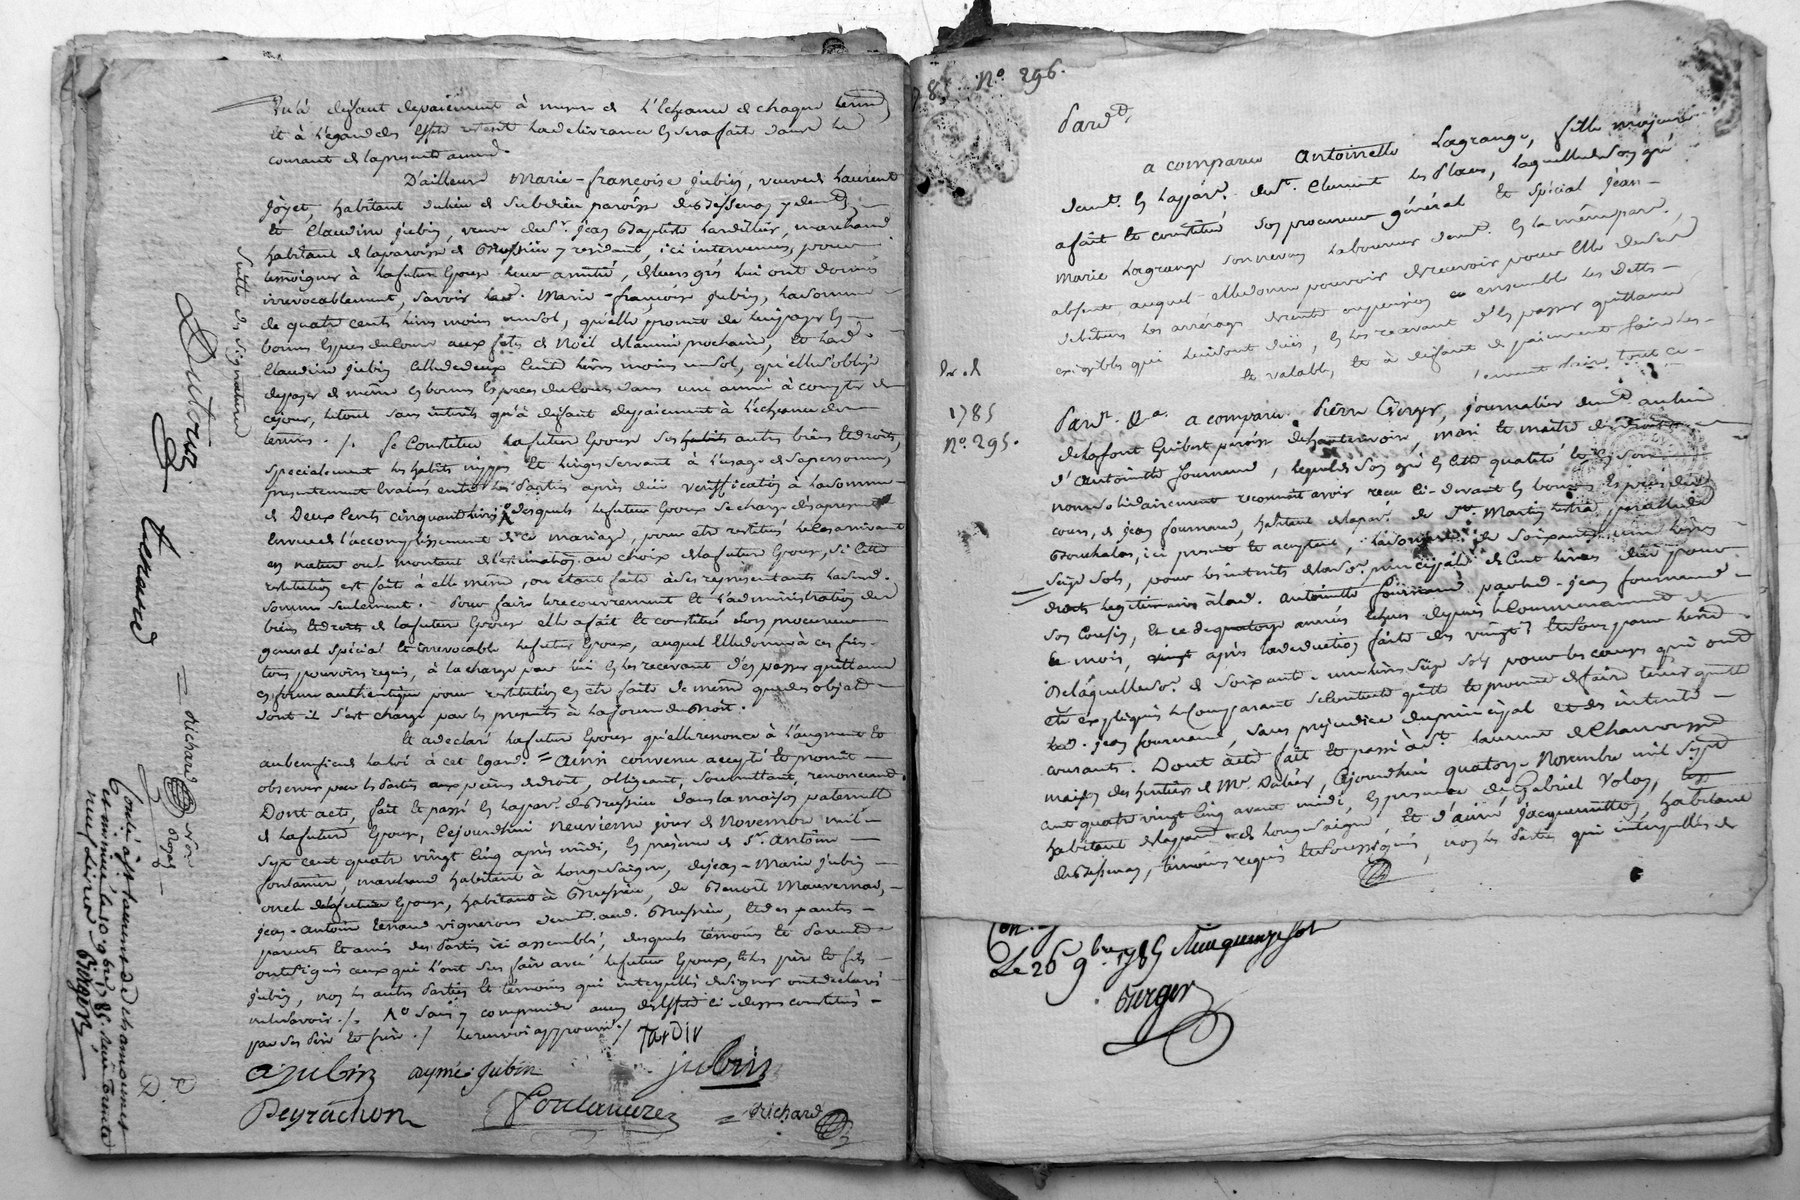 qu'à défaut de paiement à mesure de l'Echeance de chaque terme
et à l'egard des Effets la delivrance en sera faite dans le
courant de la presente année.
D'ailleurs Marie-françoise jubin, veuve de Laurent
joyet, habitant du lieu de paroisse de Bessenay y demt.
et Claudine jubin, veuve du Sr. jean Baptiste marchand
habitant de la paroisse de Brussieu y residant, ici intervenues, pour
temoigner à la future Epouse leur amitié, de leurs gré lui ont donné
irrevocablement, savoir lad. Marie-françoise jubin, la somme
de quatre cents livres moins un sol, qu'elle promet de lui payer en
bonnes Especes du Cour aux fetes de Noël de l'année prochaine, et lad.
Claudine jubin celle de deux Cents livres moins un sol, qu'elle s'oblige
de payer de même en bonnes Especes du Cours dans une année à compter de
ce jour, le tout sans interets qu'à defaut de paiement à l'echeance des
termes. /. Se Constitue la future Epouse ses autres biens et droits,
specialement les habits nippes et linges servant à l'usage de sa personne,
presentement Evalués entre les Parties après due verification à la somme
de Deux Cents cinquante livres desquels le futur Epoux se charge dès à present
En vue de l'accomplissement de ce mariage, pour etre restitués le Cas arrivant
en nature ou le montant de l'estimation au choix de la future Epouse, si cette
restitution est faite à elle même, ou etant faite à ses representants lad.
somme seulement. Pour faire le recouvrement et l'administration des
biens et droits de la future Epouse elle a fait et constitué Son procureur
general special et irrevocable le futur Epoux, auquel Elle donne à ces fins
tous pouvoirs requis, à la charge par lui en les recevant d'en passer quittance
en forme authentique pour restitution en etre faite de même que des objets
dont il s'est chargé par les presentes à la forme du Droit.
Et a declaré la future Epouse qu'elle renonce à l'augment et
au benefice de la loi à cet Egard. = Ainsi convenu accepté et promis
observer par les Parties aux peines de droit, obligeant, soumettant, renonceant.
Dont acte, fait et passé en la par. de Brussieu dans la maison paternelle
de la future Epouse, Cejourdhui neuvieme jour de Novembre mil
sept cent quatre vingt cinq après midi, en présence de Sr. Antoine
fontaniere, marchand habitant à Longesaigne, de jean-Marie jubin
oncle de la future Epouse, habitant à Brussieu, de Benoit Mauvernay,
jean-Antoine terrand vignerons demt. aud. Brussieu, et des
parents et amis des Parties ici assemblés, desquels témoins et Parents
ont signé ceux qui l'ont su faire avec le futur Epoux, et les père et fils
jubin, non les autres Parties et témoins qui interpellés de signer ont déclaré
ne le savoir. /. n'y comprendre aucun des Effets ci-dessus constitués
par ses Père et frère. / le renvoi approuvé. / Tardiv
ajubin aymé jubin jubin
Peyrachon fontaniere = Richard
Suitte des signatures
Dutour
terrand
= Richard
Nre.
Royal
Controlé à St Laurent de chamousset
et insinué le 20 9bre 1785
neuf livres Burger
D. C.
1785 N.° 296.
Pardt.
a comparu Antoinette Lagrange, fille majeure
demt. en la par. de St. Clement les Places, laquelle de son gré
a fait et constitué son procureur général et spécial jean-
Marie Lagrange son neveu laboureur demt. en la même par.
absent auquel elle donne pouvoir de recevoir pour elle de ses
débiteurs les arrérages de rente ou pension ensemble les dettes
exigibles qui lui sont dües, en les recevant d'en passer quittance
et valable, et à défaut de paiement faire les
tout ce
1785
N.° 295.
Pardt. &a. a comparu Pierre Berger, journalier demt. au lieu
de la font Guibert paroisse de hauterivoire, mari et maître des droits
d'Antoinette fournand, lequel de son gré en cette qualité et en son
nom solidairement reconnoit avoir recu ci-devant en bonnes Especes du
cours, de jean fournand, habitant de la par. de St. Martin
ici present et aceptant, la somme de soixante une livres
seize sols, pour les interets de la Se. principale de Cent livres due pour
droits legitimaires à lad. Antoinette fournand par led. jean fournand
son Cousin, et ce de quatorze années echues depuis le Commencement de
ce mois, après la deduction faite des vingt.es et sols pour livre
De laquelle Se. de soixante une livres seize sols pour les causes qui ont
été expliqués le Comparant se contente quitte et promet de faire tenir quitte
led. jean fournand, sans prejudice du principal et des interets
courants. Dont acte fait et passé à St. Laurent de Chamousset
maison des heritiers de Mr. Dalier, Cejourdhui quatorze Novembre mil sept
cent quatre vingt cinq avant midi, en presence de Gabriel Volay,
habitant de la par. de Longesaigne et d'aimé jacquemetton habitant
de Bessenay, témoins requis et soussignés, non les Parties qui interpellés de
Le 26 9bre 1785 Reçu quinze sol
Burger